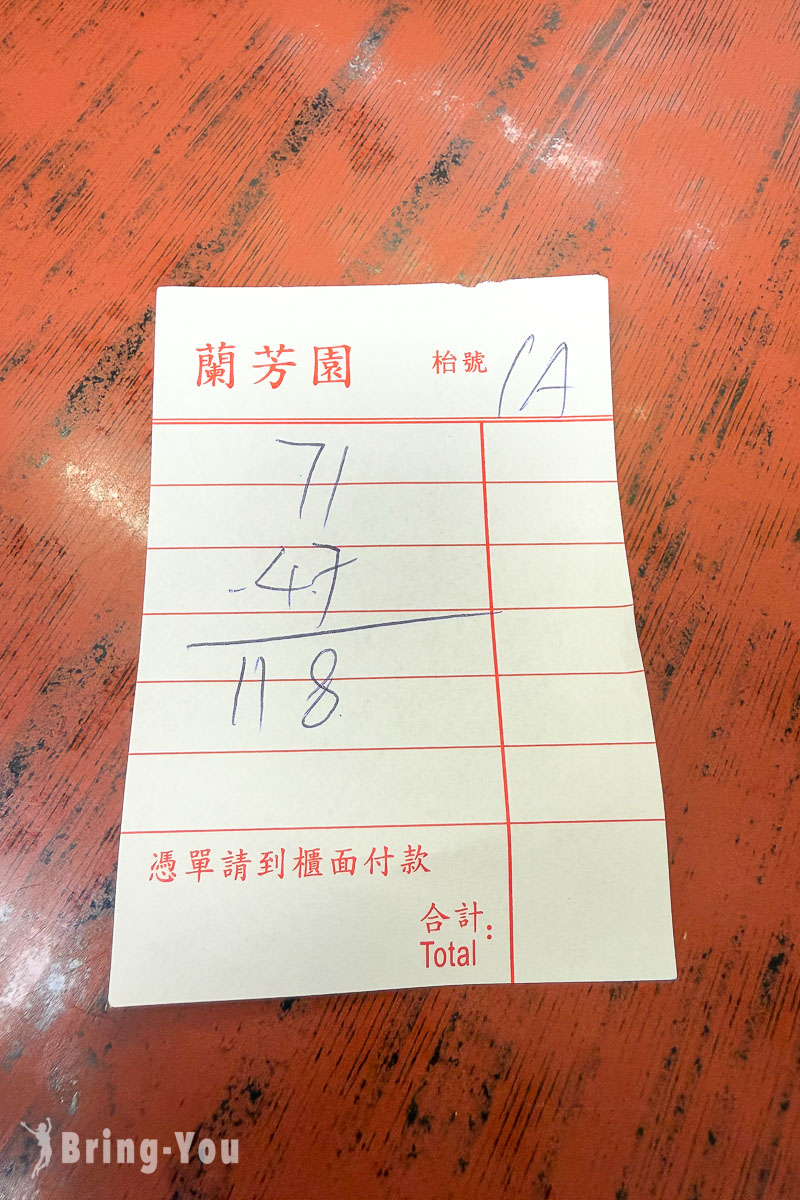 蘭芳園 枱號 1A
71
-47
118
憑單請到櫃面付款
合計:
Total
Bring-You